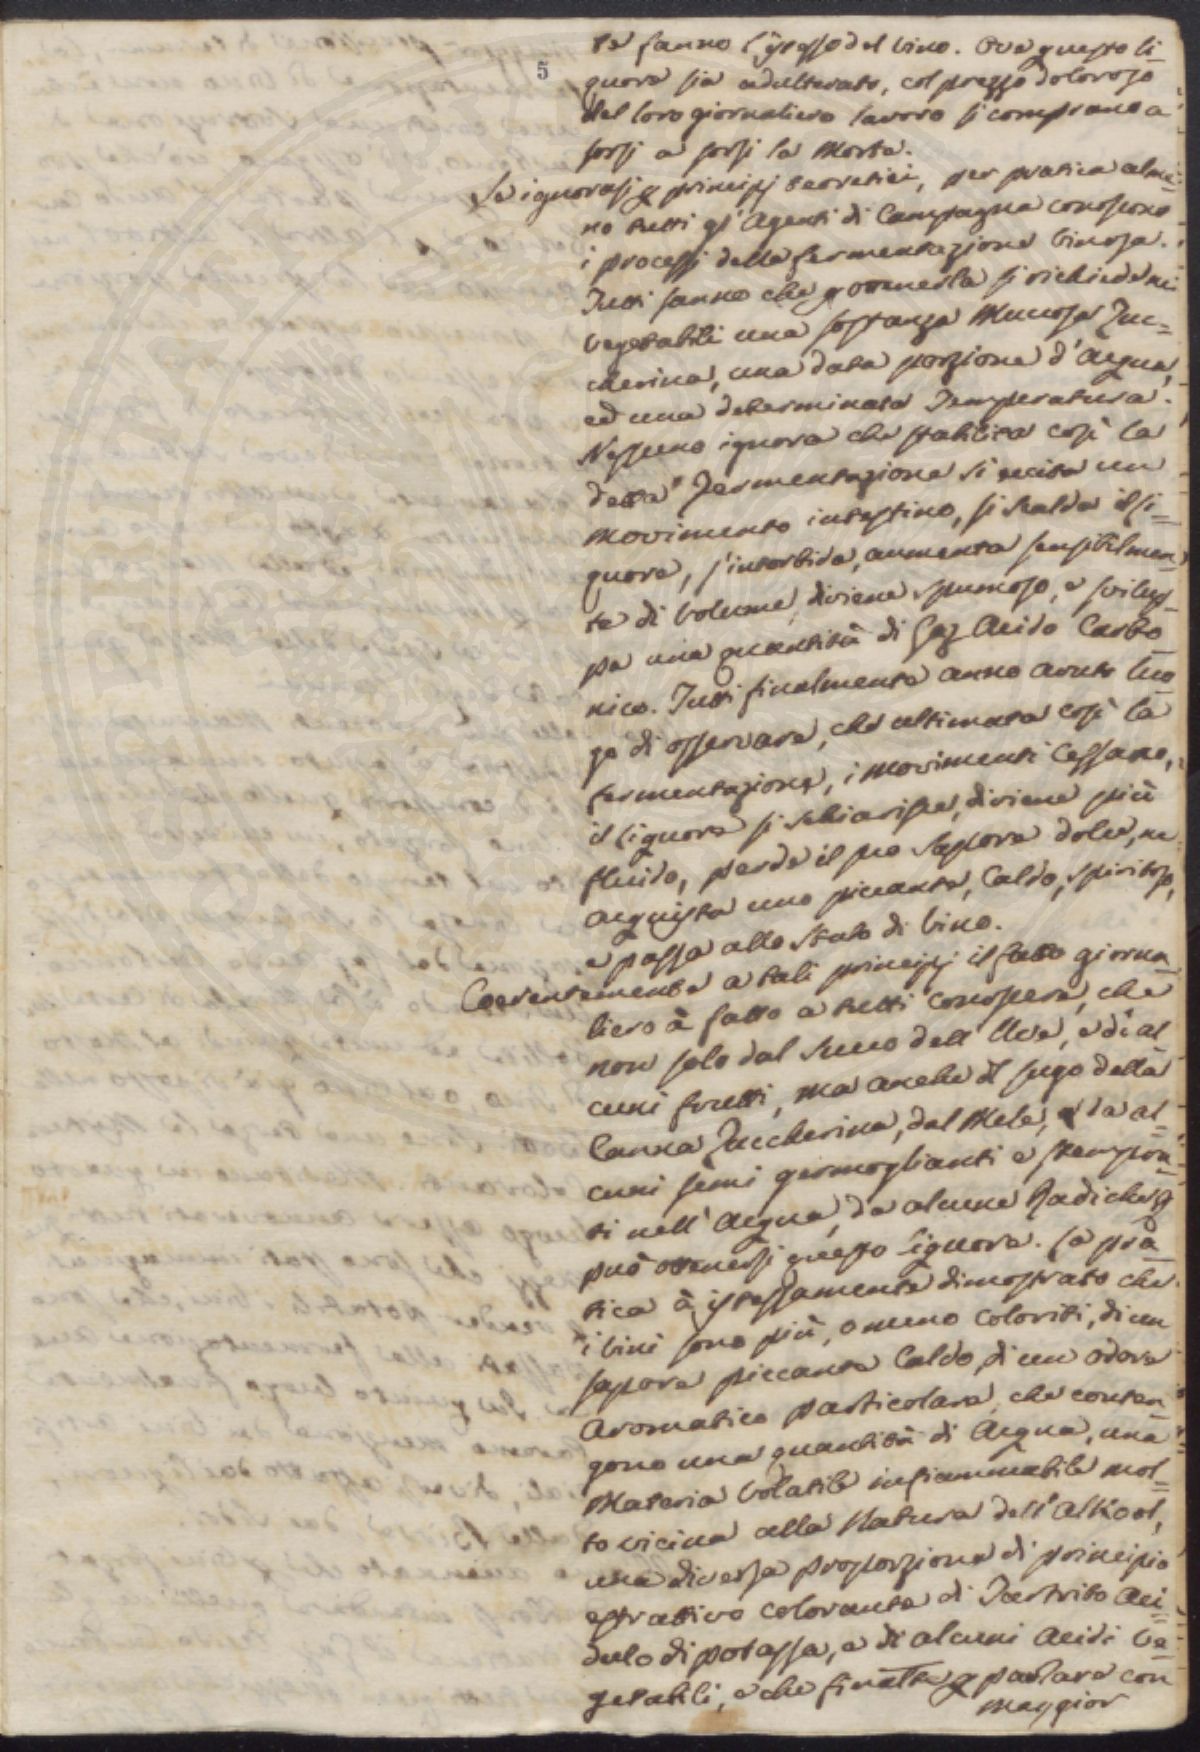 5
te fanno l'ɡresso del Vino. Ove questo li=
quore sia adulterato, col prezzo doloroso
del loro giornaliero lavoro si comprano a
sorsi a sorsi la Morte.
Se ignorasi i principj teoretici, per pratica alme=
no tutti gl' Agenti di Campagna conoscono
i processi della fermentazione Vinosa.
Tutti sanno che p ottenerla si richiede nei
Vegetabili una sostanza Mucosa Zuc=
cherina, una data porzione d'acqua,
ed una determinata Temperatura.
Nessuno ignora che stabilita così la
detta fermentazione si eccita un
Movimento intestino, si scalda il li=
quore, s'intorbida, aumenta sensibilmen=
te di Volume, diviene spumoso, e svilup=
pa una quantità di Gaz Acido Carbo
nico. Tutti finalmente anno avuto luo
go di osservare, che ultimata così la
fermentazione, i Movimenti cessano,
il liquore si schiarisce, diviene più
fluido, perde il suo Sapore dolce, ne
acquista uno piccante, Caldo, spiritoso,
e passa allo Stato di Vino.
Coerentemente a tali principj il fatto giorna
liero à fatto a tutti conoscere, che
non solo dal Succo dell' Uve, e di al
cuni frutti, Ma anche il sugo della
Canna Zuccherina, dal Mele, e da al=
cuni semi germoglianti e stempra=
ti nell' Acqua, da alcune Radiche si
può ottenersi questo liquore. La pra
tica à istessamente dimostrato che
i Vini sono più, o meno coloriti, di un
sapore piccante Caldo, di un odore
Aromatico particolare, che conten
gono una quantità di Acqua, una
Materia Volatile infiammabile mol=
to vicina alla Natura dell' Alkool,
una diversa proporzione di principio
estrattivo colorante di Tartrito Aci
dulo di potassa, e di alcuni Acidi Ve
getabili, e che finalte p parlare con
Maggior